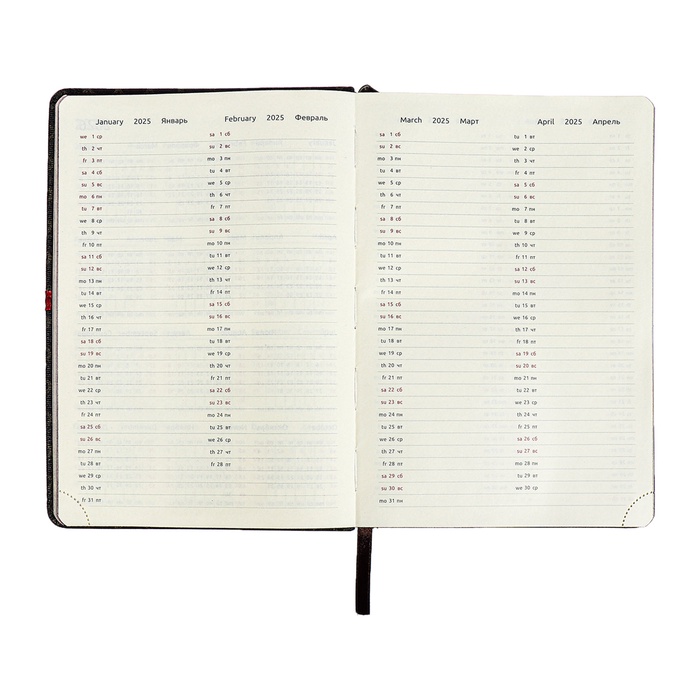 January 2025 Январь
we 1 ср
th 2 чт
fr 3 пт
sa 4 сб
su 5 вс
mo 6 пн
tu 7 вт
we 8 ср
th 9 чт
fr 10 пт
sa 11 сб
su 12 вс
mo 13 пн
tu 14 вт
we 15 ср
th 16 чт
fr 17 пт
sa 18 сб
su 19 вс
mo 20 пн
tu 21 вт
we 22 ср
th 23 чт
fr 24 пт
sa 25 сб
su 26 вс
mo 27 пн
tu 28 вт
we 29 ср
th 30 чт
fr 31 пт
February 2025 Февраль
sa 1 сб
su 2 вс
mo 3 пн
tu 4 вт
we 5 ср
th 6 чт
fr 7 пт
sa 8 сб
su 9 вс
mo 10 пн
tu 11 вт
we 12 ср
th 13 чт
fr 14 пт
sa 15 сб
su 16 вс
mo 17 пн
tu 18 вт
we 19 ср
th 20 чт
fr 21 пт
sa 22 сб
su 23 вс
mo 24 пн
tu 25 вт
we 26 ср
th 27 чт
fr 28 пт
March 2025 Март
sa 1 сб
su 2 вс
mo 3 пн
tu 4 вт
we 5 ср
th 6 чт
fr 7 пт
sa 8 сб
su 9 вс
mo 10 пн
tu 11 вт
we 12 ср
th 13 чт
fr 14 пт
sa 15 сб
su 16 вс
mo 17 пн
tu 18 вт
we 19 ср
th 20 чт
fr 21 пт
sa 22 сб
su 23 вс
mo 24 пн
tu 25 вт
we 26 ср
th 27 чт
fr 28 пт
sa 29 сб
su 30 вс
mo 31 пн
April 2025 Апрель
tu 1 вт
we 2 ср
th 3 чт
fr 4 пт
sa 5 сб
su 6 вс
mo 7 пн
tu 8 вт
we 9 ср
th 10 чт
fr 11 пт
sa 12 сб
su 13 вс
mo 14 пн
tu 15 вт
we 16 ср
th 17 чт
fr 18 пт
sa 19 сб
su 20 вс
mo 21 пн
tu 22 вт
we 23 ср
th 24 чт
fr 25 пт
sa 26 сб
su 27 вс
mo 28 пн
tu 29 вт
we 30 ср